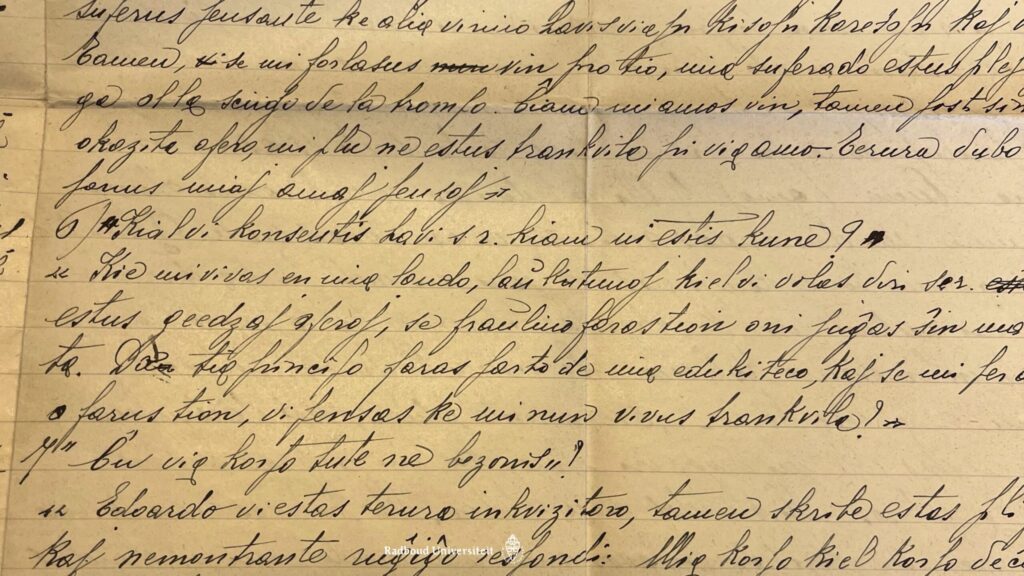 suferus pensante ke alia virino havis viajn kisojn karesojn kaj
tamen, se mi forlasus vin pro tio, mia suferado estus ple
ga olla sciigo de la trompo. Ĉiam mi amos vin, tamen post
okazita afero, mi plu ne estus trankvila pri via amo. Terura dubo
panus miaj amaj pensoj"
6) "Kial vi konsentis havi s r. kiam ni estis kune?"
" Kie mi vivas en mia lando, laŭ kutimoj kiel vi volas diri ser.
estus geedzaj aferoj, se fraŭlino faras tion oni juĝas ŝin
ta. tia principo faras parto de mia edukiteco, kaj se mi
farus tion, vi pensas ke mi nun vivus trankvila?"
7" Ĉu via korpo tute ne bezonis"?
" Edoardo vi estas terura inkvizitoro, tamen skribe estas pli
kaj nemontrante ruĝiĝo respondi: Mia korpo kiel korpo
Radboud Universiteit